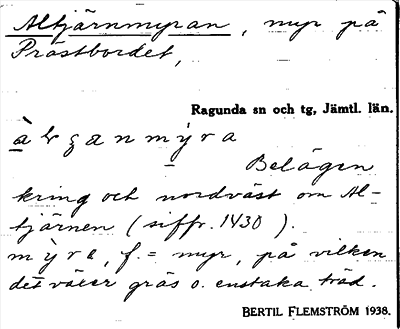 Altjärnmyran, myr på
Prästbordet,
Ragunda sn och tg, Jämtl. län.
Belägen
kring och nordväst om Al-
tjärnen (siffr. 1430).
myra, f. = myr, på vilken
det växer gräs o. enstaka träd.
BERTIL FLEMSTRÖM 1938.